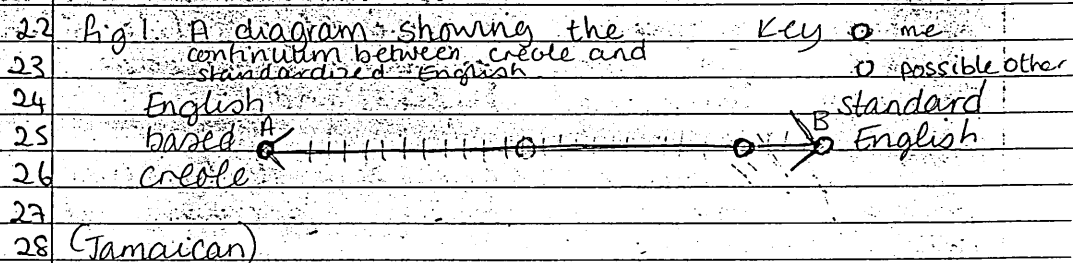 22 Fig 1. A diagram showing the Key O me
continuum between creole and
23 standardized English O possible other
24 English standard
25 based A B English
26 creole
27
28 (Jamaican)